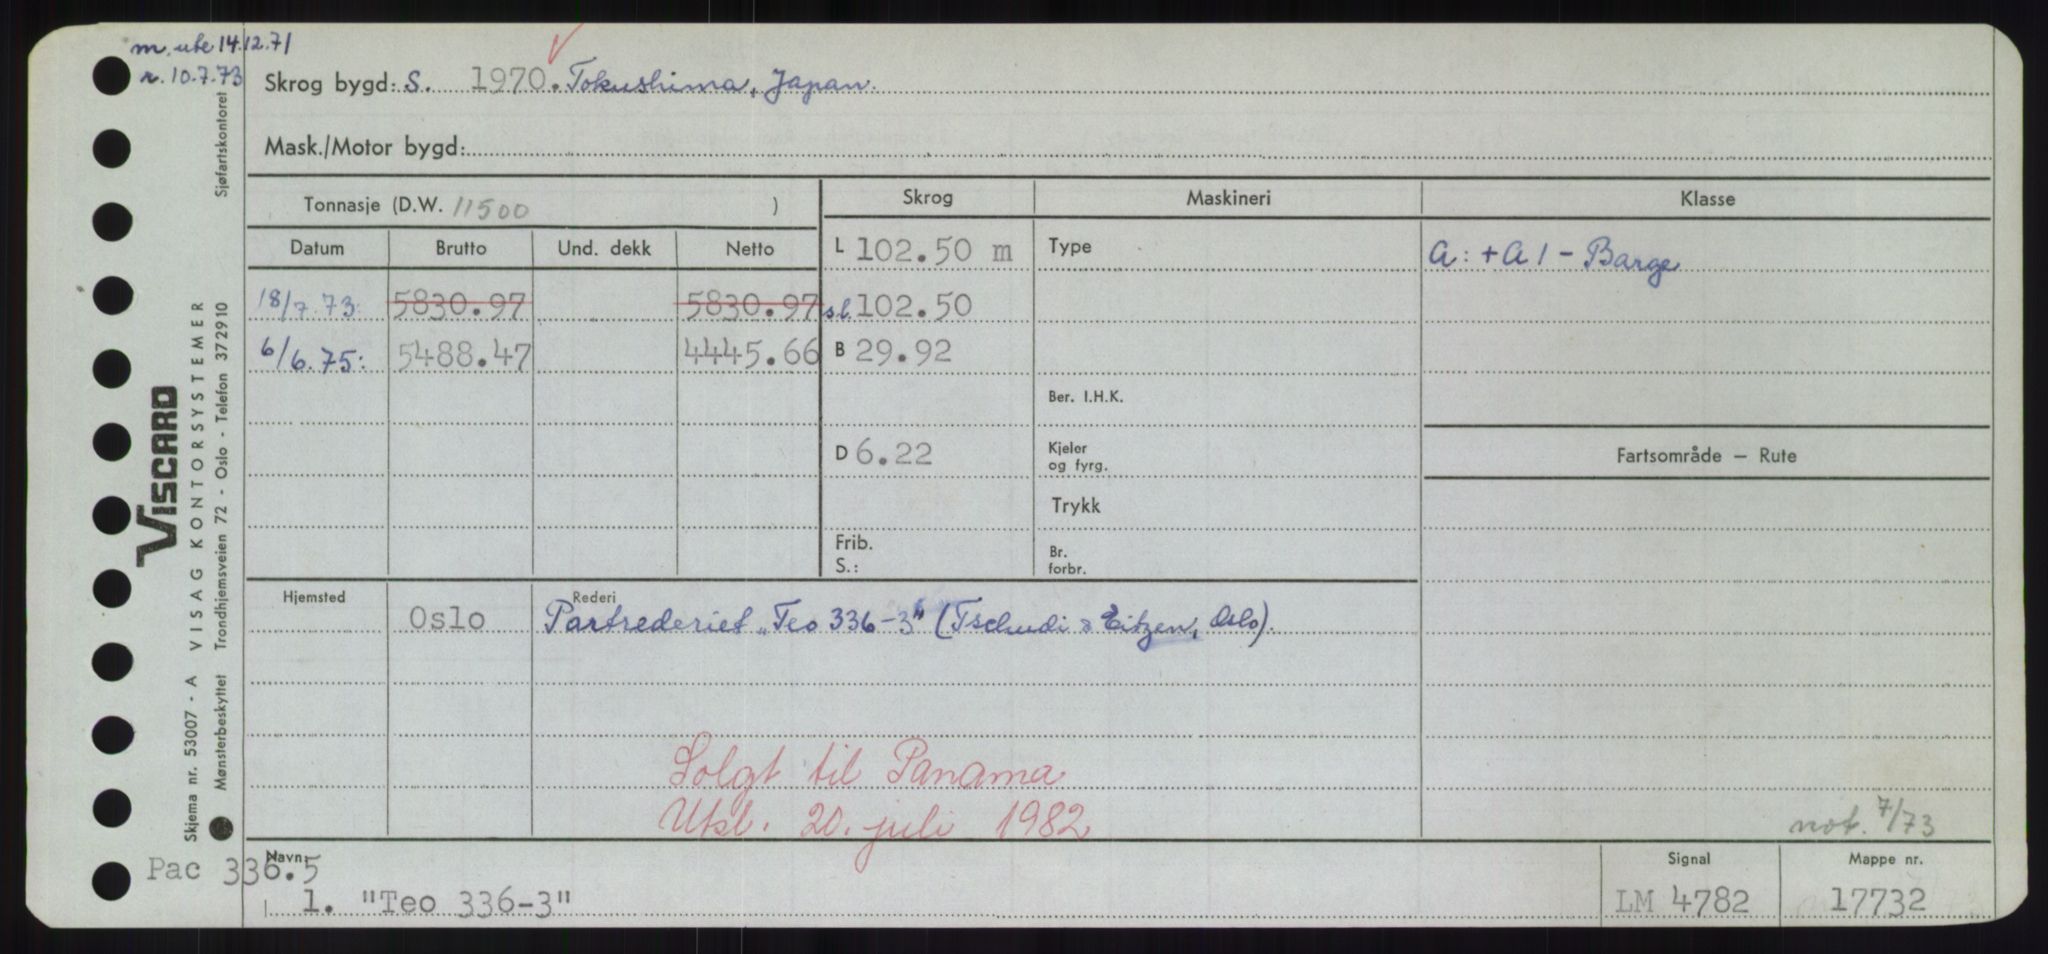 m. ute 14.12.71
r. 10.7.73
Skrog bygd: S. 1970. Tokushima, Japan.
Mask./Motor bygd:
Tonnasje (D.W. 11500 )
Skrog Maskineri Klasse
Datum Brutto Und. dekk Netto
L 102.50 m Type A: +A1 - Barge
18/7.73: 5830.97 5830.97 sl. 102.50
6/6.75: 5488.47 4445.66 B 29.92
Ber. I.H.K.
D 6.22 Kjeler og fyrg.
Fartsområde – Rute
Trykk
Frib. S.:
Br. forbr.
Hjemsted Oslo Rederi Partrederiet „Teo 336-3" (Tschudi & Eitzen, Oslo).
Solgt til Panama
Utsl. 20. juli 1982
not. 7/73
Pac 336.5
Navn:
1. "Teo 336-3"
Signal LM 4782
Mappe nr. 17732
VISCARD
Skjema nr. 53007 - A VISAG KONTORSYSTEMER
Mønsterbeskyttet Trondhjemsveien 72 - Oslo - Telefon 372910 Sjøfartskontoret